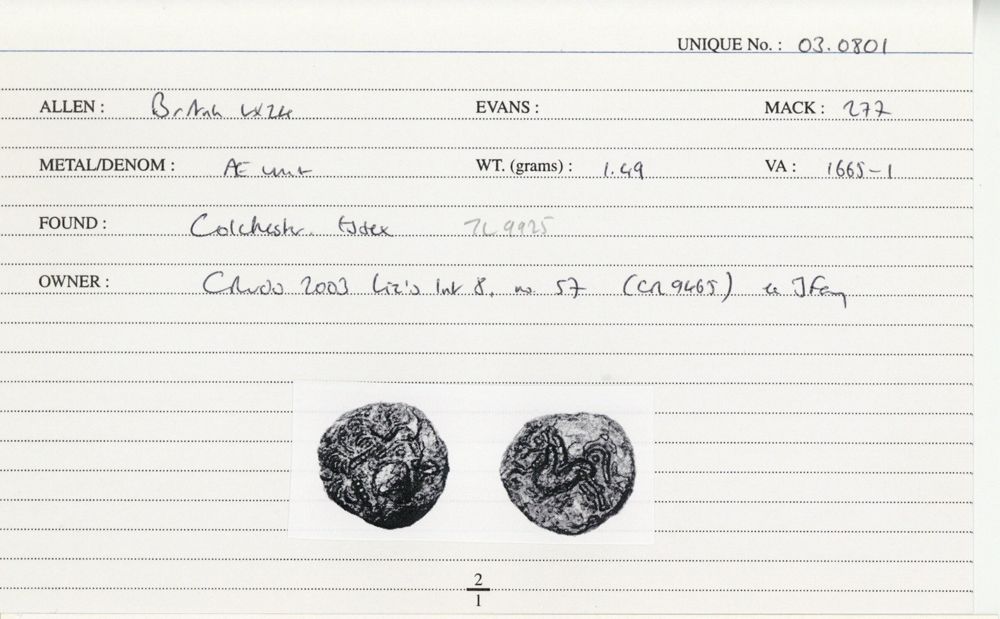 UNIQUE No. : 03.0801
ALLEN : British LX24 EVANS : MACK : 277
METAL/DENOM : Æ unit WT. (grams) : 1.49 VA : 1665-1
FOUND : Colchester. Essex TL 9925
OWNER : 2003 Liz's 8, no. 57 (CR 9465)
2
1